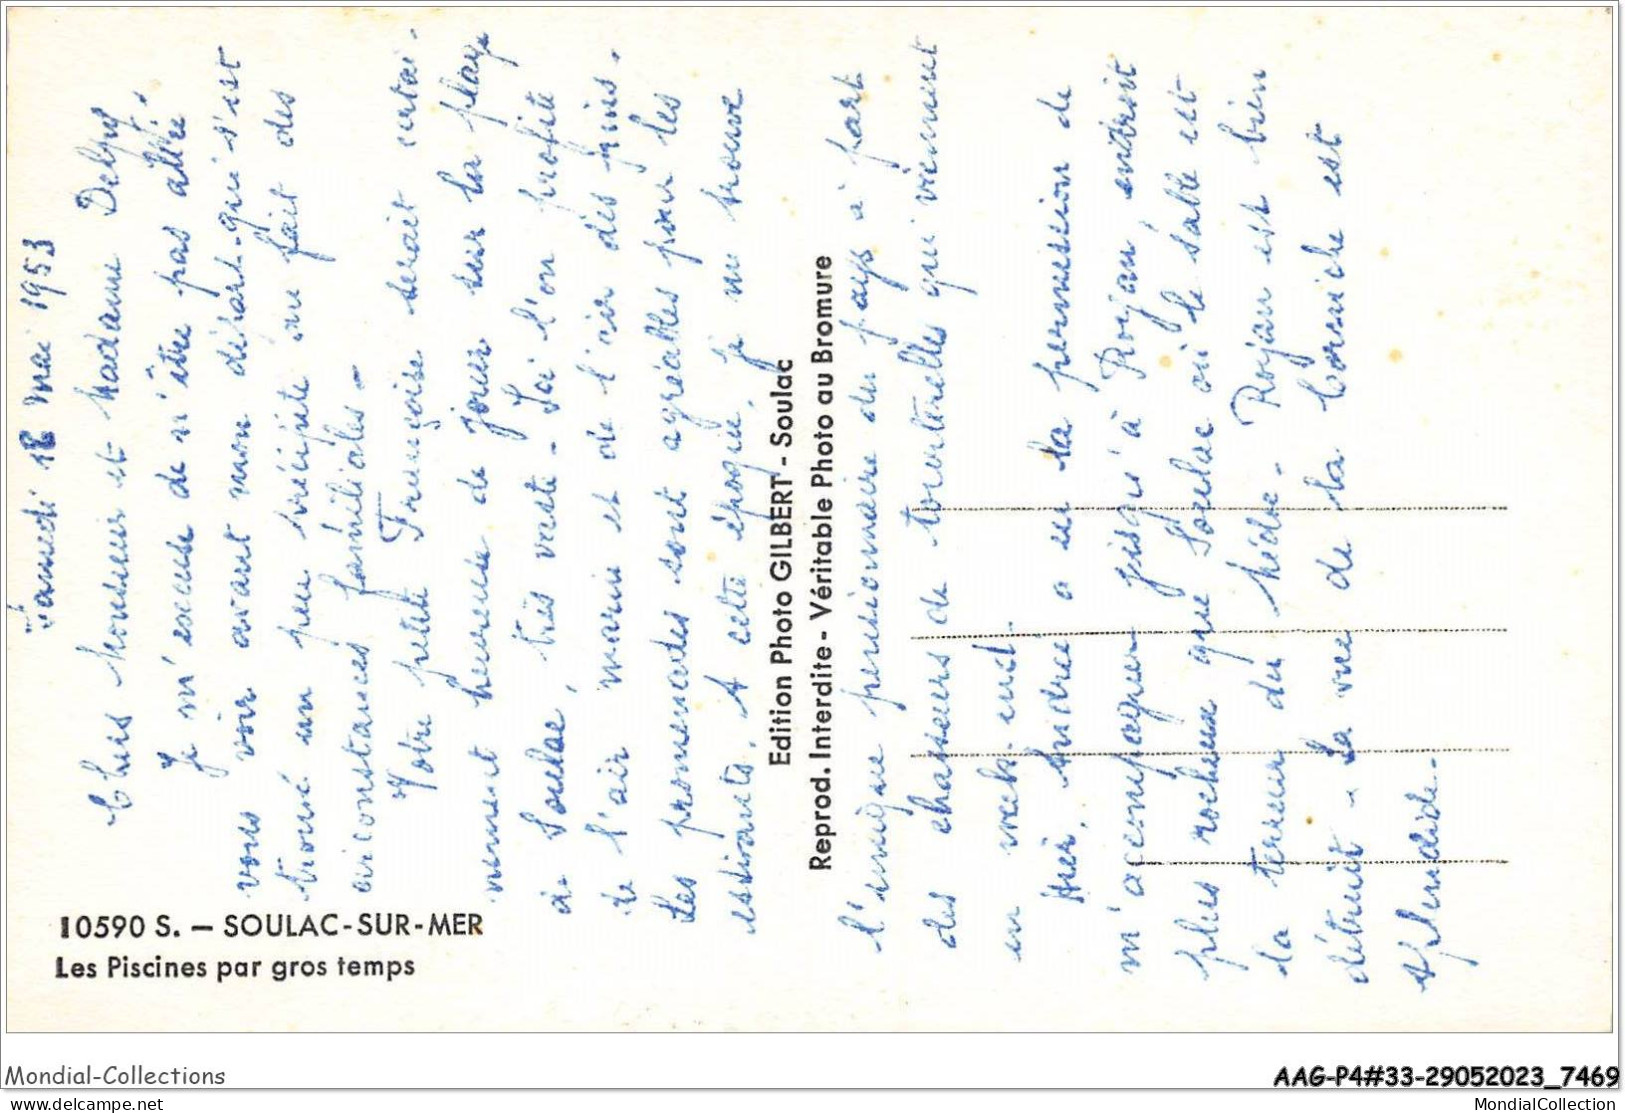 Samedi 18 mai 1953
Chers Monsieur et Madame Delpy
Je m'excuse de n'être pas allée
vous voir avant mon départ qui s'est
trouvé un peu précipité au fait des
circonstances familiales -
Votre petite Françoise serait certai-
nement heureuse de jouer sur la plage
de Soulac, très vaste - Ici l'on profite
de l'air marin et de l'air des pins.
Les promenades sont agréables pour les
estivants. A cette époque, je me trouve
l'unique pensionnaire du pays à part
des chasseurs de tourterelles qui viennent
en week-end.
Hier, André a eu la permission de
m'accompagner jusqu'à Royan endroit
plus rocheux que Soulac où le sable est
la terreur du Médoc - Royan est bien
détruit - La vue de la Corniche est
splendide -
Edition Photo GILBERT - Soulac
Reprod. Interdite - Véritable Photo au Bromure
10590 S. — SOULAC-SUR-MER
Les Piscines par gros temps
Mondial-Collections
AAG-P4#33-29052023_7469
www.delcampe.net
MondialCollection